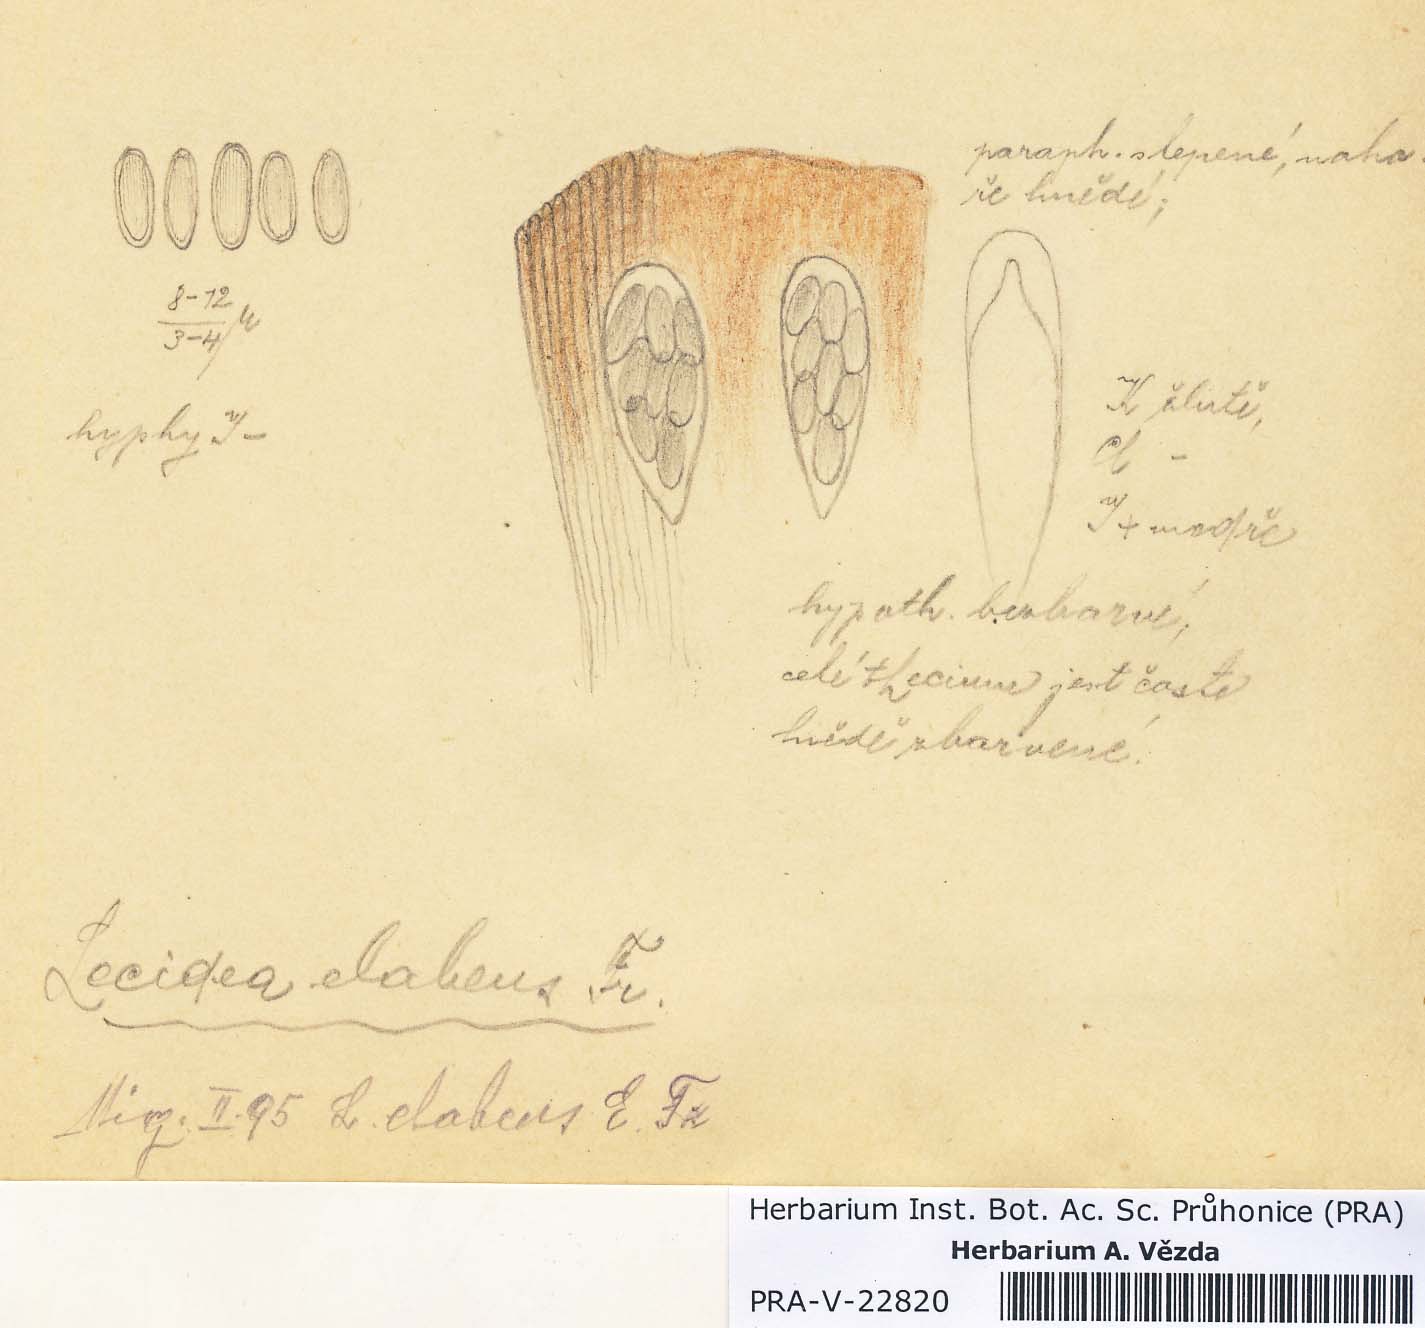 paraph. slepené, naho-
ře hnědé;
8-12
3-4 µ
hyphy J -
K žlutě,
Cl -
J + modře
hypoth. bezbarvé,
celé thecium jest často
hnědě zbarvené.
Lecidea elabens Fr.
Mig. II. 95 L. elabens E. Fr
Herbarium Inst. Bot. Ac. Sc. Průhonice (PRA)
Herbarium A. Vězda
PRA-V-22820